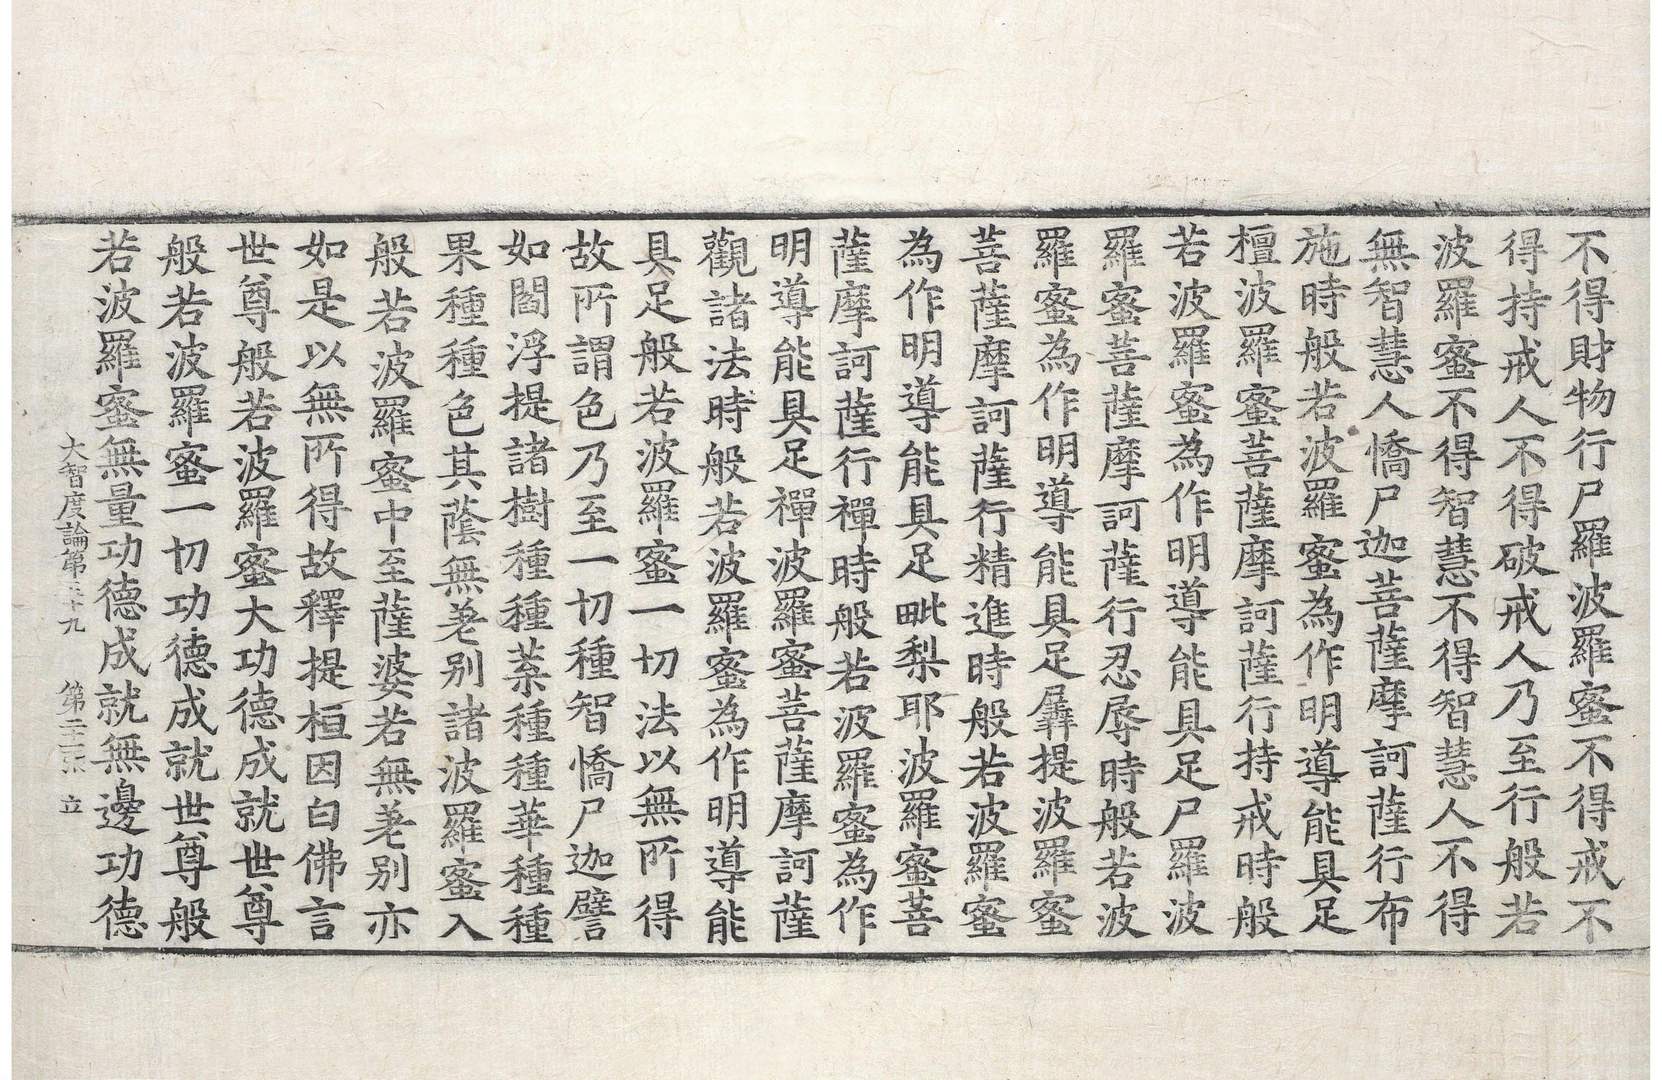 不得財物行尸羅波羅蜜不得戒不
得持戒人不得破戒人乃至行般若
波羅蜜不得智慧不得智慧人不得
無智慧人憍尸迦菩薩摩訶薩行布
施時般若波羅蜜為作明導能具足
檀波羅蜜菩薩摩訶薩行持戒時般
若波羅蜜為作明導能具足尸羅波
羅蜜菩薩摩訶薩行忍辱時般若波
羅蜜為作明導能具足羼提波羅蜜
菩薩摩訶薩行精進時般若波羅蜜
為作明導能具足毗梨耶波羅蜜菩
薩摩訶薩行禪時般若波羅蜜為作
明導能具足禪波羅蜜菩薩摩訶薩
觀諸法時般若波羅蜜為作明導能
具足般若波羅蜜一切法以無所得
故所謂色乃至一切種智憍尸迦譬
如閻浮提諸樹種種葉種種華種種
果種種色其蔭無差別諸波羅蜜入
般若波羅蜜中至薩婆若無差別亦
如是以無所得故釋提桓因白佛言
世尊般若波羅蜜大功德成就世尊
般若波羅蜜一切功德成就世尊般
若波羅蜜無量功德成就無邊功德
大智度論第十九 第張 立